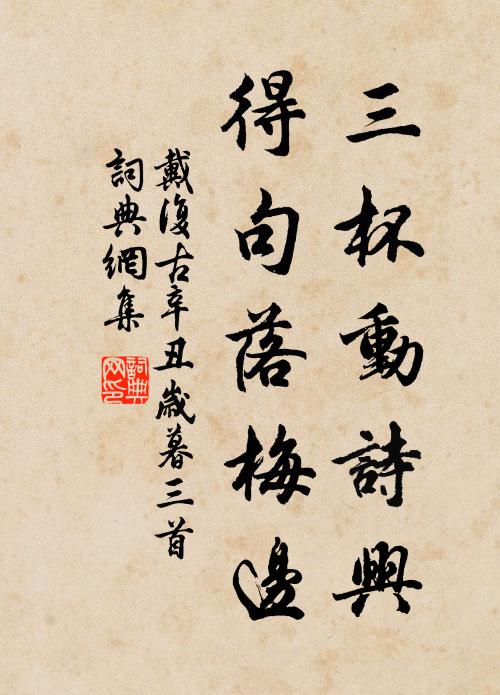 三杯動詩興
得句落梅邊
戴復古辛丑歲暮三首
詞典網集
詞典網印